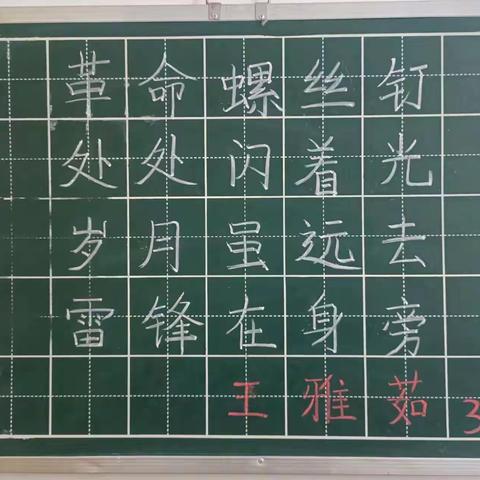 革命螺丝钉
处处闪着光
岁月虽远去
雷锋在身旁
王雅茹 3